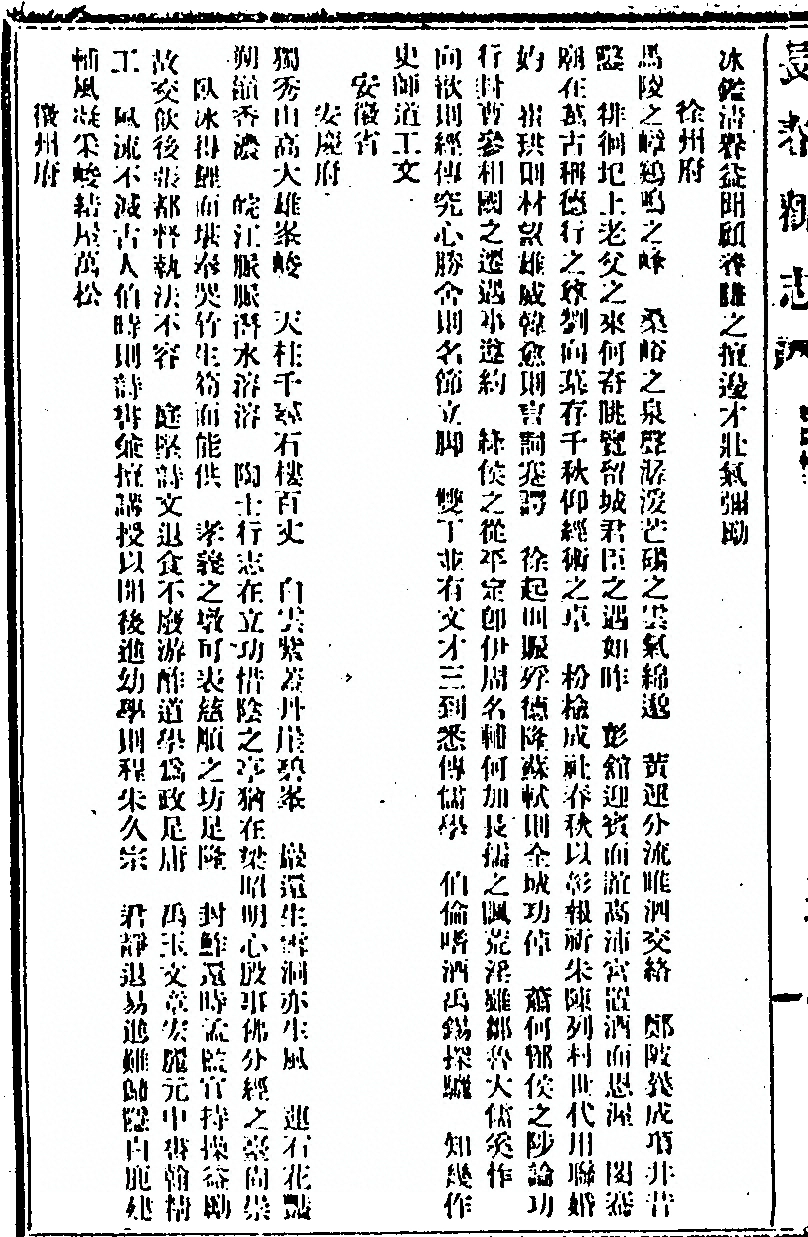 長春觀志
冰鑑清譽益明顧養謙之擅邊才壯氣彌勵
徐州府
馬陵之嶂鷄鳴之峰　桑峪之泉聲潺湲芒碭之雲氣綿邈　黃運分流睢泗交絡　鄭陂幾成項井昔
鑿　徘徊圯上老父之來何奇眺覽留城君臣之遇如昨　彭舘迎賓而誼高沛宮置酒而恩渥　閔
廟在萬古稱德行之尊劉向墓存千秋仰經術之卓　枌榆成社春秋以彰報祈朱陳列村世代用聯婚
妁　崔珙則材望雄威韓愈則書詞　徐起則賑　德隆蘇軾則全城功偉　蕭何酇侯之陟論功
行封曹參相國之遷遇事遵約　絳侯之從平定郎伊周名輔何加長孺之諷荒淫雖鄒魯大儒奚作
向歆則經傳究心勝舍則名節立脚　雙丁並有文才三到悉傳儒學　伯倫嗜酒禹錫探驪　知幾作
史師道工文
安徽省
安慶府
獨秀山高大雄峯峻　天柱千尋石樓百丈　白雲紫蓋丹崖碧峯　巖還生雲洞亦生風　蓮石花豔
朔嶺香濃　皖江脈脈潛水溶溶　陶士行志在立功惜陰之亭猶在梁昭明心殷事佛分經之臺尚崇
臥冰得鯉而堪奉哭竹生筍而能供　孝義之墩可表慈順之坊足隆　封鮓還時孟監官持操益勵
故交飲後張都督執法不容　庭堅詩文退食不廢游酢道學爲政足庸　禹玉文章宏麗元中書翰精
工　風流不減古人伯時則詩書兼擅講授以開後進幼學則程朱久宗　君靜退易進難歸隱白鹿建
輔風凝采峻結屋萬松
徽州府